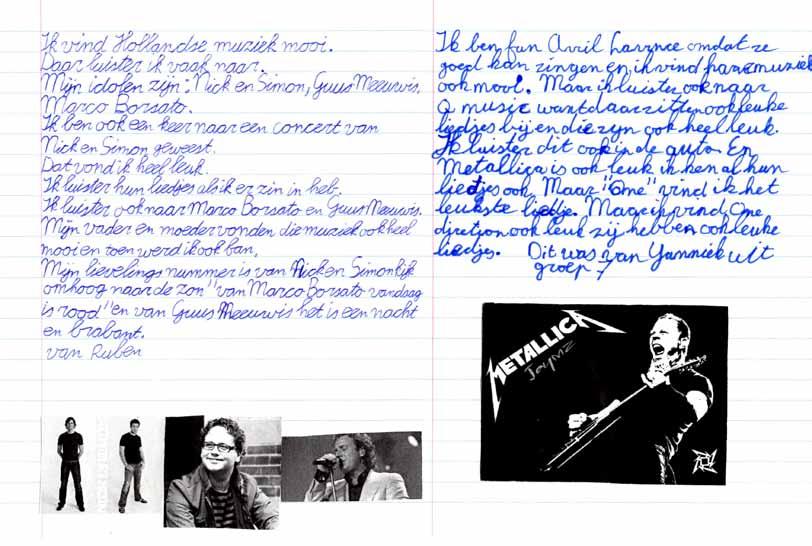 Ik vind Hollandse muziek mooi.
Daar luister ik vaak naar.
Mijn idolen zijn: Nick en Simon, Guus Meeuwis,
Marco Borsato.
Ik ben ook een keer naar een concert van
Nick en Simon geweest.
Dat vond ik heel leuk.
Ik luister hun liedjes als ik er zin in heb.
Ik luister ook naar Marco Borsato en Guus Meeuwis.
Mijn vader en moeder vonden die muziek ook heel
mooi en toen werd ik ook ban,
Mijn lievelings nummer is van Nick en Simon kijk
omhoog naar de zon" van Marco Borsato vandaag
is rood" en van Guus Meeuwis het is een nacht
en brabant.
van Ruben
Ik ben fan Avril Lavence omdat ze
goed kan zingen en ik vind haar muziek
ook mooi. Maar ik luister ook naar
Q music want daar zitten ook leuke
liedjes bij en die zijn ook heel leuk.
Ik luister dit ook in de auto. En
Metallica is ook leuk ik ken al hun
liedjes ook. Maar "One" vind ik het
leukste liedje. Maar ik vind One
diretjon ook leuk zij hebben ook leuke
liedjes. Dit was van Yanniek uit
groep 7
METALLICA
Jaymz